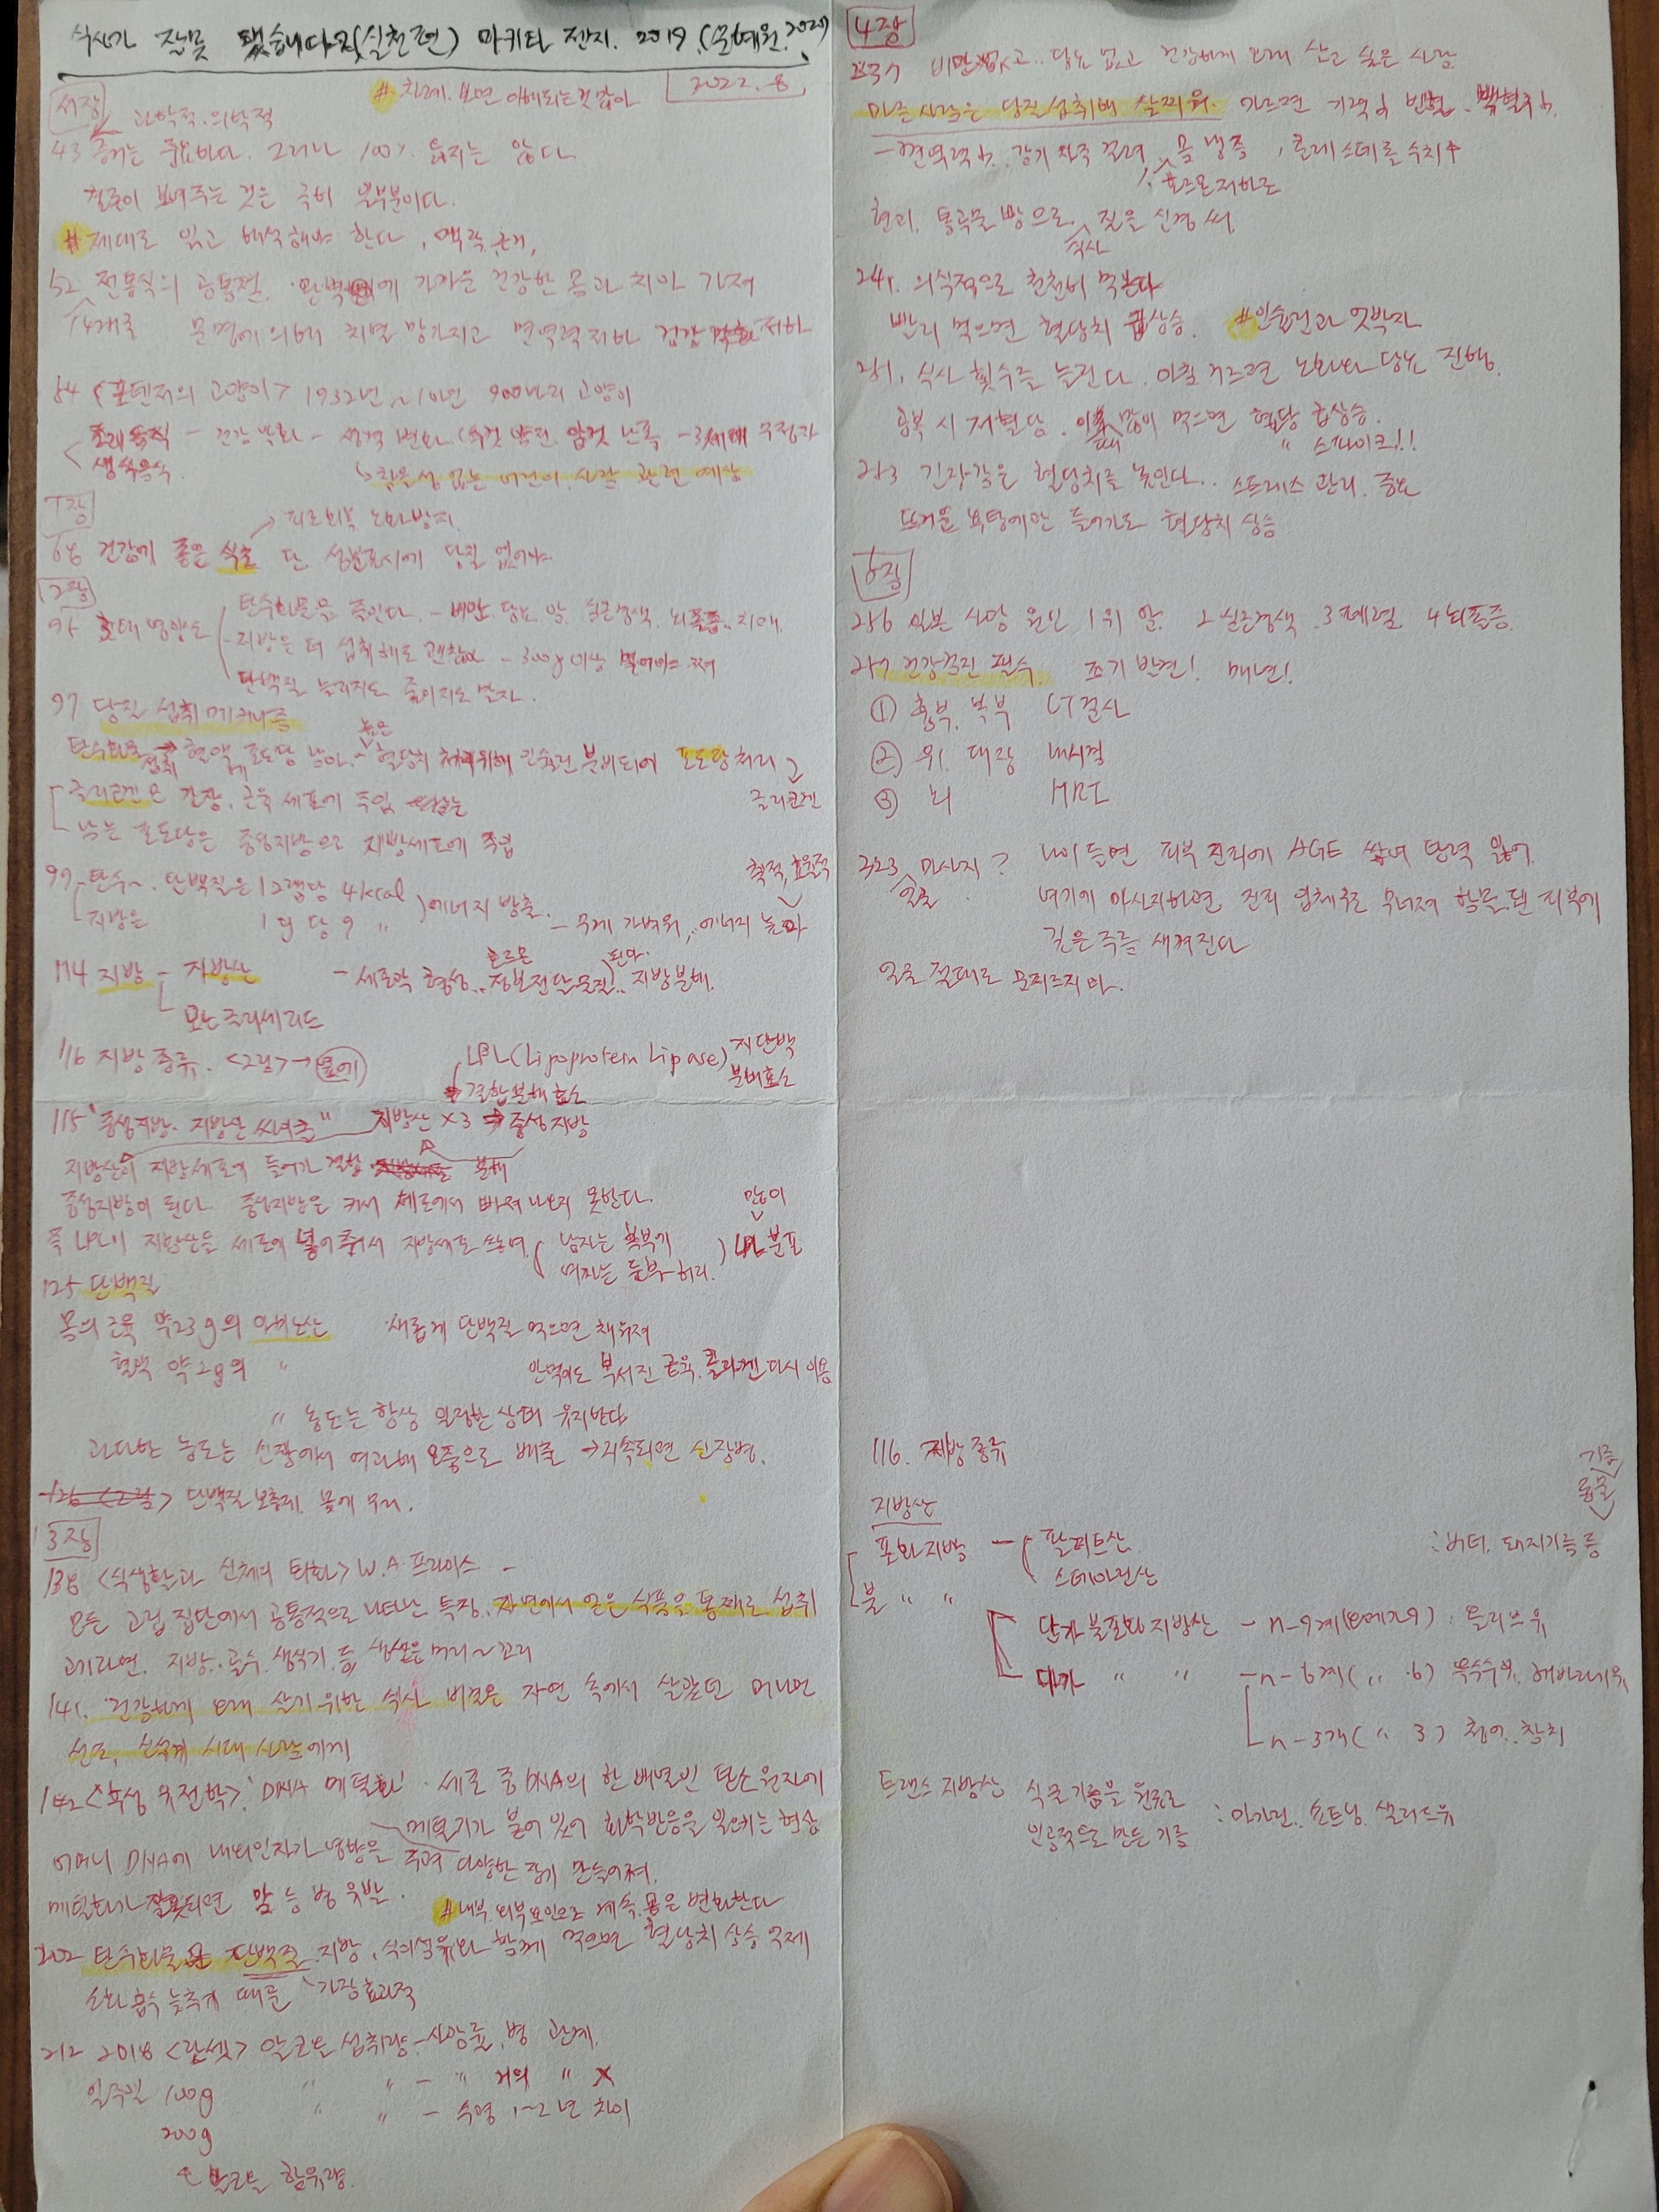 식사가 잘못 됐습니다 2 (실천편) 마키타 젠지. 2019. (문혜원. 2020)
# 차례. 보면 이해되는것 많아
2022. 8.
서장
과학적. 의학적
43 증거는 중요하다. 그러나 100% 옳지는 않다
논문이 보여주는 것은 극히 일부분이다.
# 제대로 읽고 해석해야 한다, 맥락, 근거,
52 전통식의 공통점. 완벽에 가까운 건강한 몸과 치아 가져
14개국 문명에 의해 치열 망가지고 면역력저하 건강 저하
54 <포텐저의 고양이> 1932년~10년 900마리 고양이
조리음식 - 건강 악화 - 성격 변화 (수컷 얌전. 암컷 난폭 - 3세대
생식음식.
↳ 참을성 없는 어린이. 식생활 관련 예상
1장
→ 피로회복 노화방지.
68 건강에 좋은 식초 단 성분표시에 당질 없어야
2장
95 3대 영양소
탄수화물을 줄인다. - 비만. 당뇨. 암. 심근경색. 뇌졸중. 치매.
- 지방은 더 섭취해도 괜찮아 - 300g 이상 먹어야 쪄
단백질 늘리지도 줄이지도 말자.
97 당질 섭취 메커니즘
탄수화물 섭취 → 혈액에 포도당 남아. - 높은 혈당치 처리위해 인슐린 분비되어 포도당처리
글리코겐
글리코겐은 간장. 근육 세포에 축적
남는 포도당은 중성지방으로 지방세포에 축적
99 - 탄수~. 단백질은 1그램당 4kcal
지방은 1g 당 9 〃
에너지 방출.
- 무게 가벼워, 에너지 높아
축적, 효율적
114 지방 - 지방산
모노글리세리드
- 세포막 형성. 호르몬 정보전달물질. 된다. 지방분해.
116 지방 종류. <그림> → 옆에
LPL (Lipoprotein Lipase) 지단백 분해효소
결합분해 효소
115 "중성지방. 지방산 " 지방산 x 3 → 중성지방
지방산이 지방세포에 들어가 결합 분해
중성지방이 된다. 중성지방은 커서 세포에서 빠져나오지 못한다.
즉 LPL이 지방산을 세포에 넣어줘서 지방세포 쓰는데
남자는 복부에
여자는 둔부~허리.
많이
LPL 분포
125 단백질
몸의 근육 약 23g의 아미노산 새롭게 단백질 먹으면 채워져
혈액 약 2g의 〃 안먹어도 부서진 근육. 콜라겐 다시 이용
〃 농도는 항상 일정한 상태 유지한다
과다한 농도는 신장에서 여과해 오줌으로 배출 → 지속되면 신장병.
단백질 보충제. 몸에 무리.
3장
138 <식생활과 신체의 퇴화> W.A 프라이스 -
모든 고립 집단에서 공통적으로 나타난 특징. 자연에서 얻은 식품을 통째로 섭취
고기라면. 지방. 골수. 생식기. 등 생선은 머리~꼬리
141. 건강하게 오래 살기 위한 식사 비결은 자연 속에서 살았던 머나먼
선조, 신석기 시대 사람에게
142 <후성 유전학>. 'DNA 메틸화'. 세포 중 DNA의 한 배열인 탄소원자에
메틸기가 붙어 있어 화학반응을 일으키는 현상
어머니 DNA에 내외인자가 영향을 주며 다양한 장기 만들어져.
메틸화가 잘못되면 암 등 병 유발.
# 내부. 외부요인으로 계속. 몸은 변화한다
202 탄수화물은 단백질. 지방. 식이섬유와 함께 먹으면 혈당치 상승 억제
소화 흡수 늦추기 때문 가장 효과적
212 2018 <랜셋> 알코올 섭취량 - 사망률, 병 관계.
일주일 100g 〃 〃 - 〃 거의 〃 X
200g 〃 〃 - 수명 1~2년 차이
알코올 함유량.
4장
237 비만 없고.. 당뇨 없고 건강하게 오래 살고 싶은 사람
마른 사람은 당질 섭취해 살찌워. 마르면 기력↓ 빈혈. 백혈구↓.
- 면역력↓. 감기 자주 걸려 몸 냉증, 콜레스테롤 수치↑
호르몬 저하로
현미, 통곡물 빵으로. 식사 질을 신경 써.
241. 의식적으로 천천히 먹는다
빨리 먹으면 혈당치 급상승. # 인슐린과 엇박자
251. 식사 횟수를 늘린다. 아침 거르면 노화와 당뇨 진행.
공복 시 저혈당. 이때 많이 먹으면 혈당 급상승.
〃 스파이크!!
253 긴장감은 혈당치를 높인다.. 스트레스 관리. 중요
뜨거운 욕탕에만 들어가도 혈당치 상승
256 일본 사망 원인 1위 암. 2 심근경색. 3 폐렴 4 뇌졸중.
257 건강검진 필수. 조기 발견! 매년!
① 흉부. 복부 CT검사
② 위. 대장 내시경
③ 뇌 MRI
323 마사지? 나이 들면 피부 진피에 AGE 쌓여 탄력 잃어.
얼굴 여기에 마사지하면 진피 업체로 무너져 함몰된 피부에
깊은 주름 새겨진다
얼굴 절대로 문지르지 마.
116. 지방종류
지방산
포화지방 - 팔미트산
스테아린산
기름
동물
: 버터. 돼지기름 등
불 〃 〃
단가 불포화 지방산 - n-9계 (오메가9). 올리브유
다가 〃 〃 - n-6계 (〃 6) 옥수수유, 해바라기유
n-3계 (〃 3) 청어. 참치
트랜스 지방산 식물기름을 원료로
인공적으로 만든 기름
: 마가린. 쇼트닝. 샐러드유